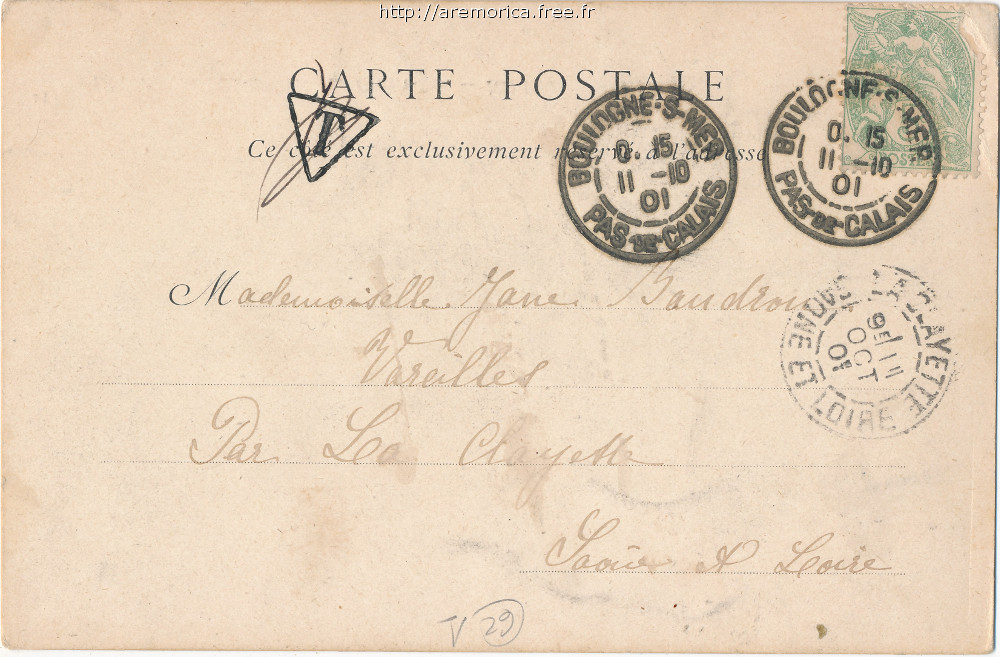 http://aremorica.free.fr
CARTE POSTALE
T
Ce côté est exclusivement réservé à l'adresse
BOULOGNE-S-MER
0. 15
11 -10
01
PAS-DE-CALAIS
BOULOGNE-S-MER
0. 15
11 -10
01
PAS-DE-CALAIS
POSTE
Mademoiselle Jane Baudron
Vareilles
Par La Clayette
Saône & Loire
LA CLAYETTE
11
OCT
01
SAONE ET LOIRE
V 29